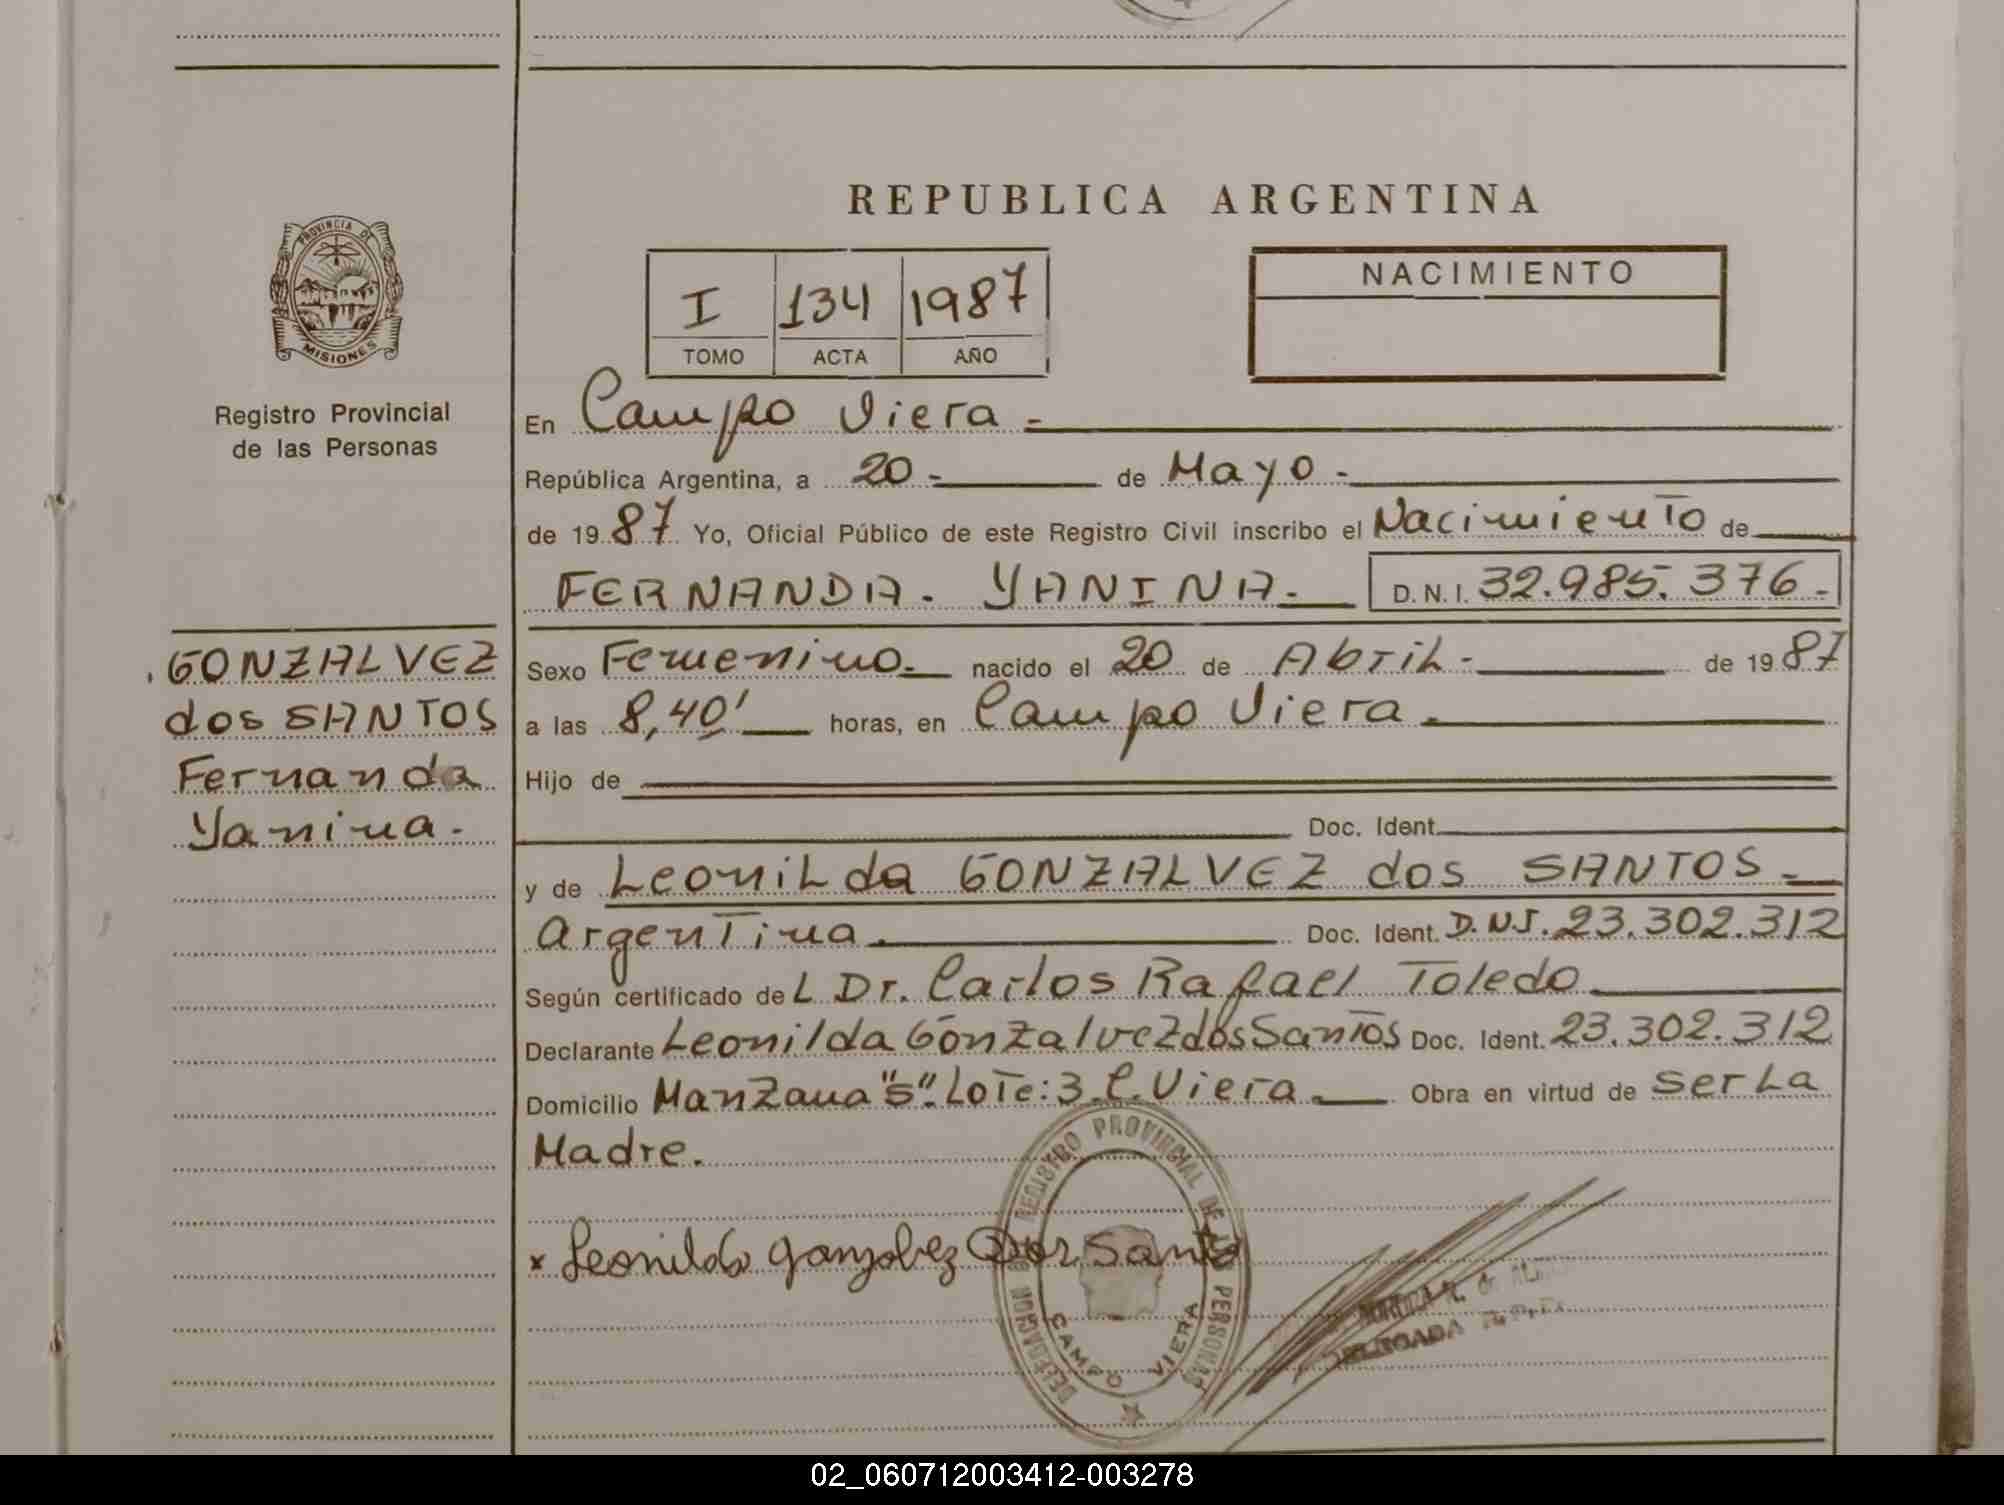 REPUBLICA ARGENTINA
PROVINCIA DE
MISIONES
Registro Provincial
de las Personas
I 134 1987
TOMO ACTA AÑO
NACIMIENTO
En Campo Viera -
República Argentina, a 20 - de Mayo -
de 19 87 Yo, Oficial Público de este Registro Civil inscribo el Nacimiento de
FERNANDA. YANINA. D.N.I. 32.985.376.-
GONZALVEZ
dos SANTOS
Fernanda
Yanina.
Sexo Femenino. nacido el 20 de Abril - de 19 87
a las 8,40' horas, en Campo Viera.
Hijo de
Doc. Ident.
y de Leonilda GONZALVEZ dos SANTOS -
Argentina. Doc. Ident. D.N.I. 23.302.312
Según certificado de L Dr. Carlos Rafael Toledo
Declarante Leonilda Gonzalvez dos Santos Doc. Ident. 23.302.312
Domicilio Manzana "S". Lote: 3 C. Viera Obra en virtud de ser La
Madre.
x Leonilda Gonzalvez Dos Santo
DELEGACION REGISTRO PROVINCIAL DE LAS PERSONAS
CAMPO VIERA
DELEGADA
02_060712003412-003278